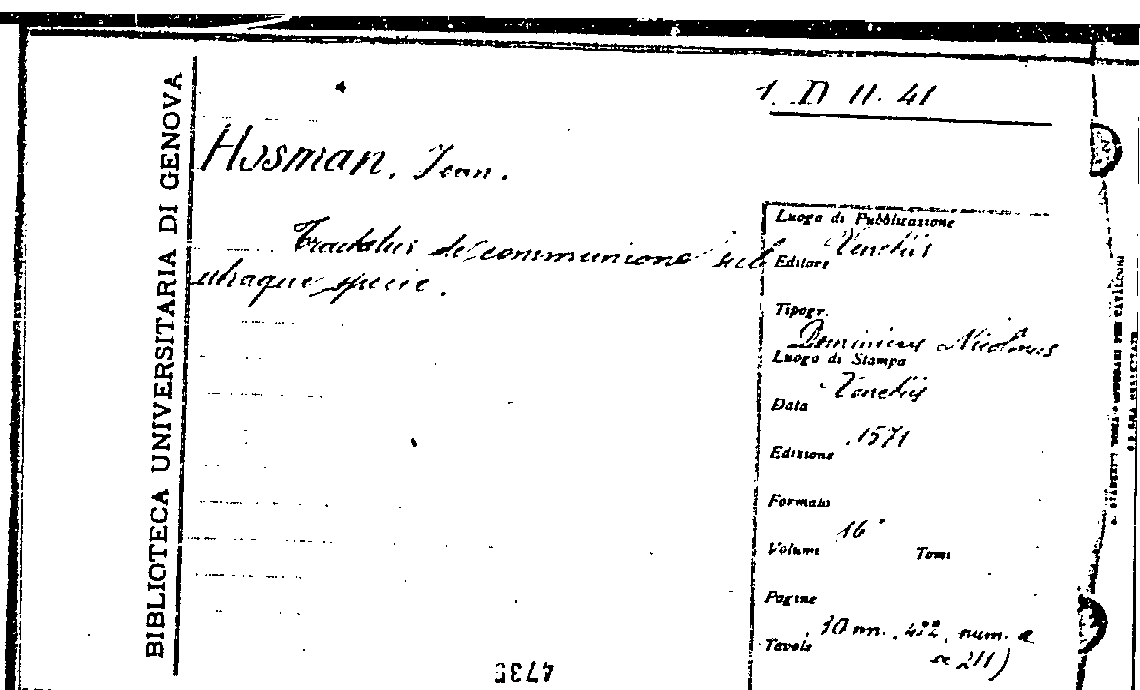 1. D II. 41
BIBLIOTECA UNIVERSITARIA DI GENOVA
Hosman, Jean.
Tractatus de communione sub
utraque specie.
Luogo di Pubblicazione
Venetiis
Editore
Tipogr.
Dominicus Nicolinus
Luogo di Stampa
Venetiis
Data
1571
Edizione
Formato
16°
Volumi Tomi
Pagine
10 nn. 422, num.
Tavole
211)
4735